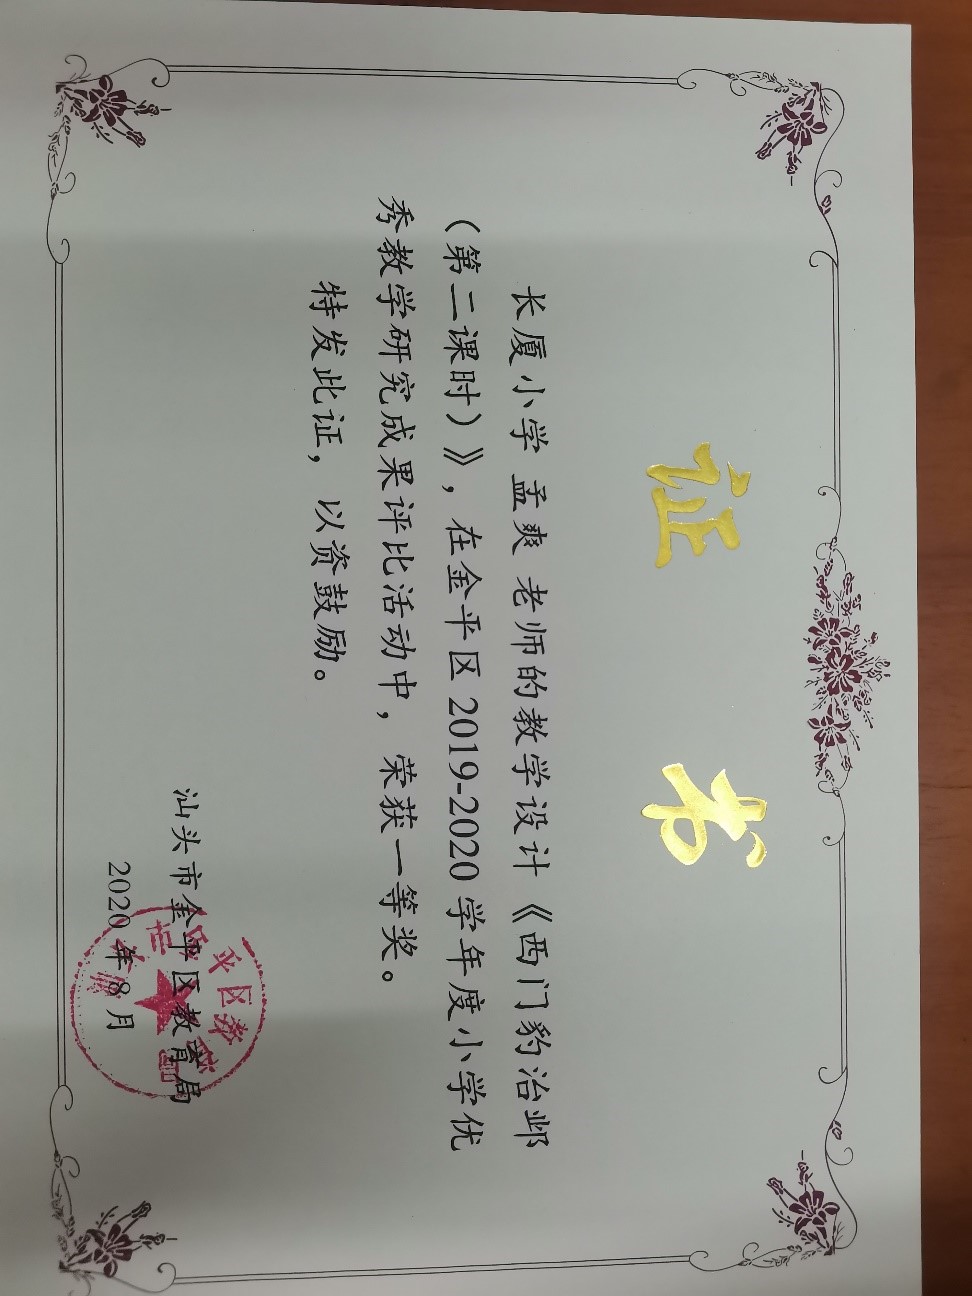 证书
长厦小学 孟爽 老师的教学设计《西门豹治邺
(第二课时)》，在金平区 2019-2020 学年度小学优
秀教学研究成果评比活动中，荣获一等奖。
特发此证，以资鼓励。
汕头市金平区教育局
2020 年 8 月